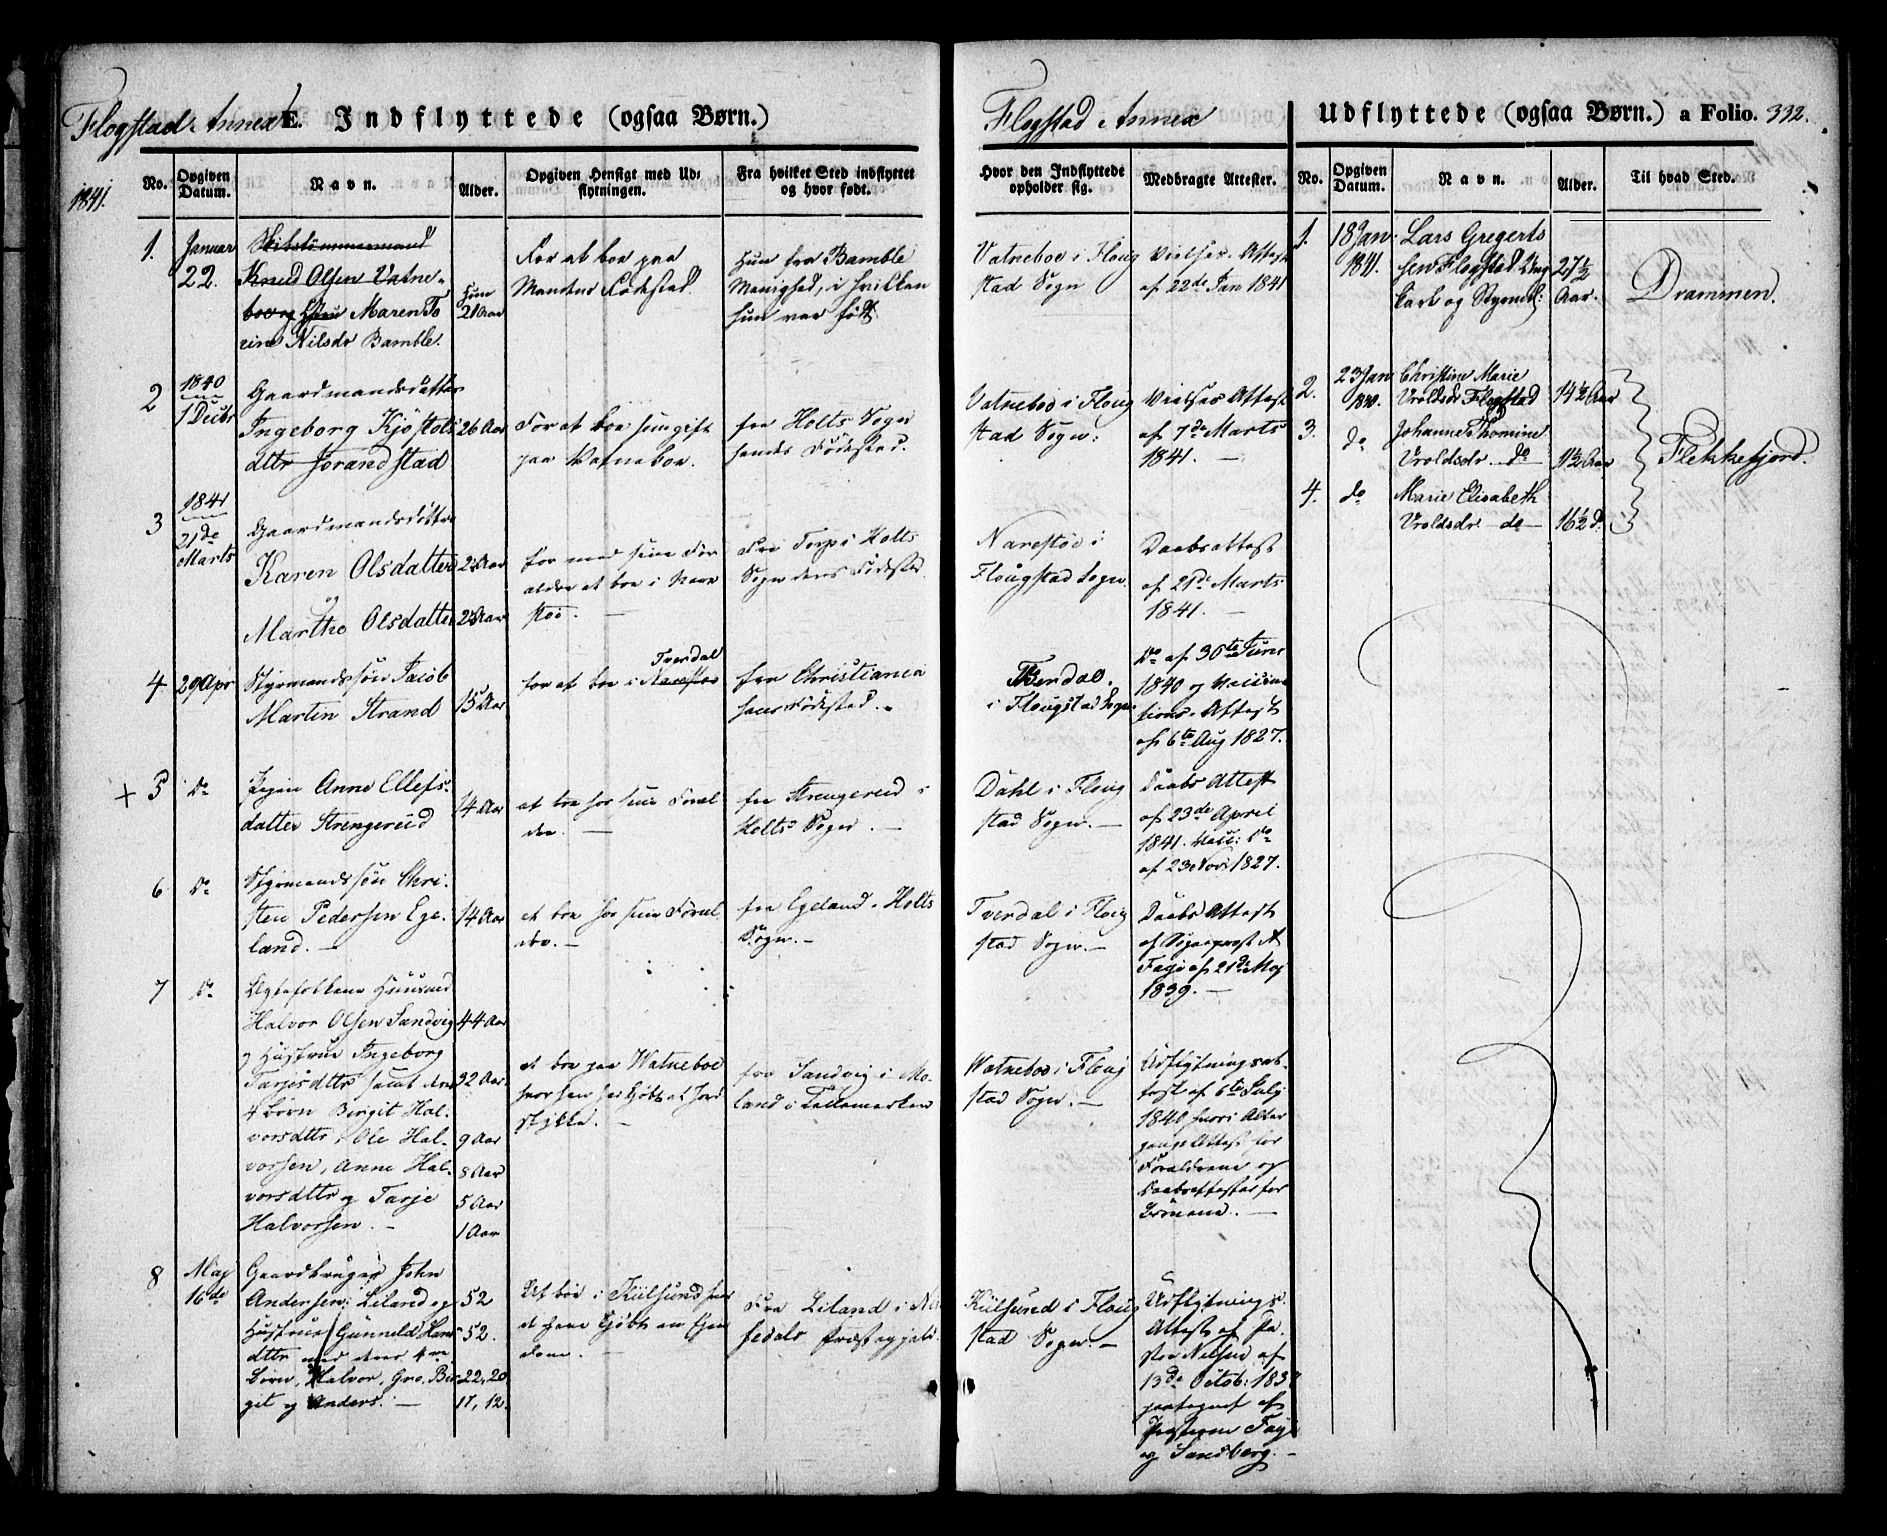 Flogstad Annex E. Indflyttede (ogsaa Børn.)
1841.
No. Opgiven Datum. Navn. Alder. Opgiven Hensigt med Ud: flytningen. Fra hvilket Sted indflyttet og hvor født.
1. Januar 22.
Skibstømmermand
Knud Olsen Vatne-
boe og Hustru Maren To
rine Nilsdr Bamble.
Hun 21 Aar
For at boe paa
Mandens Fødested.
Hun fra Bamble
Menighed, i hvilken
hun var født.
2 1840 1 Decbr
Gaardmandsdatter
Ingeborg Kjøstols
dttr Jorandstad
26 Aar
For at boe som gift
paa Vatneboe.
fra Holts Sogn
hendes Fødested.
3 1841 21de Marts
Gaardmandsdøttre
Karen Olsdatter
og
Marthe Olsdatter
2 Aar
2 Aar
for med sine For
ældre at boe i Nare
stöe. —
Fra Torp i Holts
Sogn deres Fødested.
4 29 Apr
Styrmandssön Jacob
Martin Strand
15 Aar
Tverdal
for at boe i Narestöe
fra Christiania
hans Fødested. -
+ 5 do
Pigen Anne Ellefs-
datter Strengereid
14 Aar
at boe hos sine Foræl
dre. —
fra Strengereid i
Holts Sogn. —
6 do
Styrmandssön Chri-
sten Pedersen Ege-
land. —
14 Aar
at boe hos sine Foræl
dre. -
fra Egeland i Holts
Sogn. -
7 do
Ægtefolkene Huusmd
Halvor Olsen Sandvig
og Hustrue Ingeborg
Tarjesdttr samt deres
4 børn Birgit Hal-
vorsdttr, Ole Hal-
vorsen, Anne Hal-
vorsdttr og Tarje
Halvorsen. -
44 Aar
32 Aar.
9 Aar
8 Aar
5 Aar
1 Aar
at boe paa Watneboe
hvor han har kjöbt et Jord
stykke. -
fra Sandvig i Mo-
land i Tellemarken
8 May 16de
Gaardbruger John
Andersen Liland og
Hustrue Gunneld Hans
dttr med deres 4re
børn, Halvor, Gro, Bir
git og Anders. —
52
52.
22, 20
17, 12.
At boe i Kiilsund hvor
at have kjöbt en Eien
dom. -
Fra Liland i Nis
sedals Præstegjeld.
Flogstad Annex Udflyttede (ogsaa Børn.) a Folio. 332.
Hvor den Indflyttede opholder sig. Medbragte Attester. No. Opgiven Datum. Navn. Alder. Til hvad Sted.
Vatneboe i Floug
stad Sogn
Vielses-Attest
af 22de Jan 1841
Vatneboe i Floug
stad Sogn:
Vielses Attest
af 7de Marts
1841. —
Narestöe i
Flougstad Sogn.
Daabsattest
af 21de Marts
1841. —
Tverdal.
i Flougstad Sogn
Do af 30te Juni
1840 og Vaccina
tions-Attest
af 6te Aug 1827.
Dahl i Floug
stad Sogn. —
Daabs Attest
af 23de April
1841. Vacc: do
af 23 Nov: 1827.
Tverdal i Floug
stad Sogn. —
Daabs Attest
af Sognepræst A
Faye af 21de May
1839. —
Watneboe i Floug
stad Sogn. —
Udflytningsat-
test af 6te July
1840 hvori Alter
gangs Attest for
Forældrene og
Daabsattester for
Börnene. —
Kiilsund i Floug
stad Sogn. -
Udflytnings-
Attest af Pa-
stor Nielsen af
13de Octob: 183
paategnet af
Præsterne Faye
og Sandberg. —
1. 18 Jan: 1841.
Lars Gregerts
sen Flogstad Ung
karl og Styrmd:
27½ Aar.
Drammen.
2. 23 Jan 1840.
Christine Marie
Vroldsdr Flogstad
14½ Aar
3. do
Johanne Thomine
Vroldsdr do
11½ Aar
Flekkefjord.
4. do
Marie Elisabeth
Vroldsdr do
16½ d.